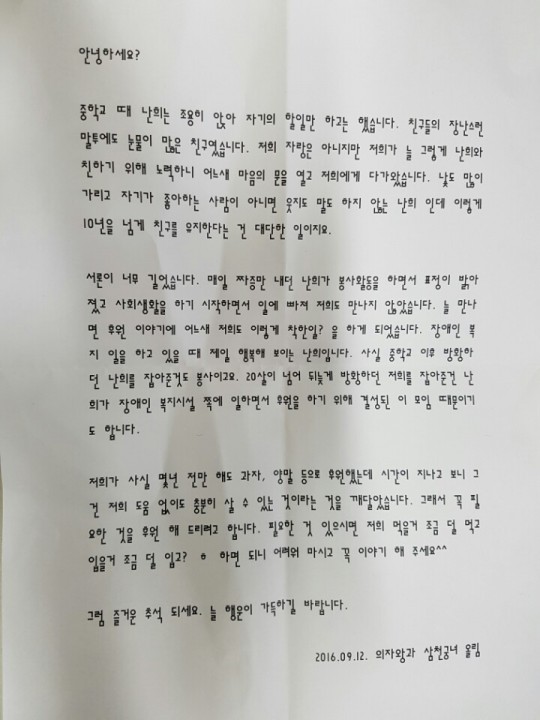 안녕하세요?
중학교 때 난희는 조용히 앉아 자기의 할일만 하고는 했습니다. 친구들의 장난스런
말투에도 눈물이 많은 친구였습니다. 저희 자랑은 아니지만 저희가 늘 그렇게 난희와
친하기 위해 노력하니 어느새 마음의 문을 열고 저희에게 다가왔습니다. 낯도 많이
가리고 자기가 좋아하는 사람이 아니면 웃지도 말도 하지 않는 난희 인데 이렇게
10년을 넘게 친구를 유지한다는 건 대단한 일이지요.
서론이 너무 길었습니다. 매일 짜증만 내던 난희가 봉사활동을 하면서 표정이 밝아
졌고 사회생활을 하기 시작하면서 일에 빠져 저희도 만나지 않았습니다. 늘 만나
면 후원 이야기에 어느새 저희도 이렇게 착한일? 을 하게 되었습니다. 장애인 복
지 일을 하고 있을 때 제일 행복해 보이는 난희입니다. 사실 중학교 이후 방황하
던 난희를 잡아준것도 봉사이고요. 20살이 넘어 뒤늦게 방황하던 저희를 잡아준건 난
희가 장애인 복지시설 쪽에 일하면서 후원을 하기 위해 결성된 이 모임 때문이기
도 합니다.
저희가 사실 몇년 전만 해도 과자, 양말 등으로 후원했는데 시간이 지나고 보니 그
건 저희 도움 없이도 충분히 살 수 있는 것이라는 것을 깨달았습니다. 그래서 꼭 필
요한 것을 후원 해 드리려고 합니다. 필요한 것 있으시면 저희 먹을거 조금 덜 먹고
입을거 조금 덜 입고? ㅎ 하면 되니 어려워 마시고 꼭 이야기 해 주세요^^
그럼 즐거운 추석 되세요. 늘 행운이 가득하길 바랍니다.
2016.09.12. 의자왕과 삼천궁녀 올림